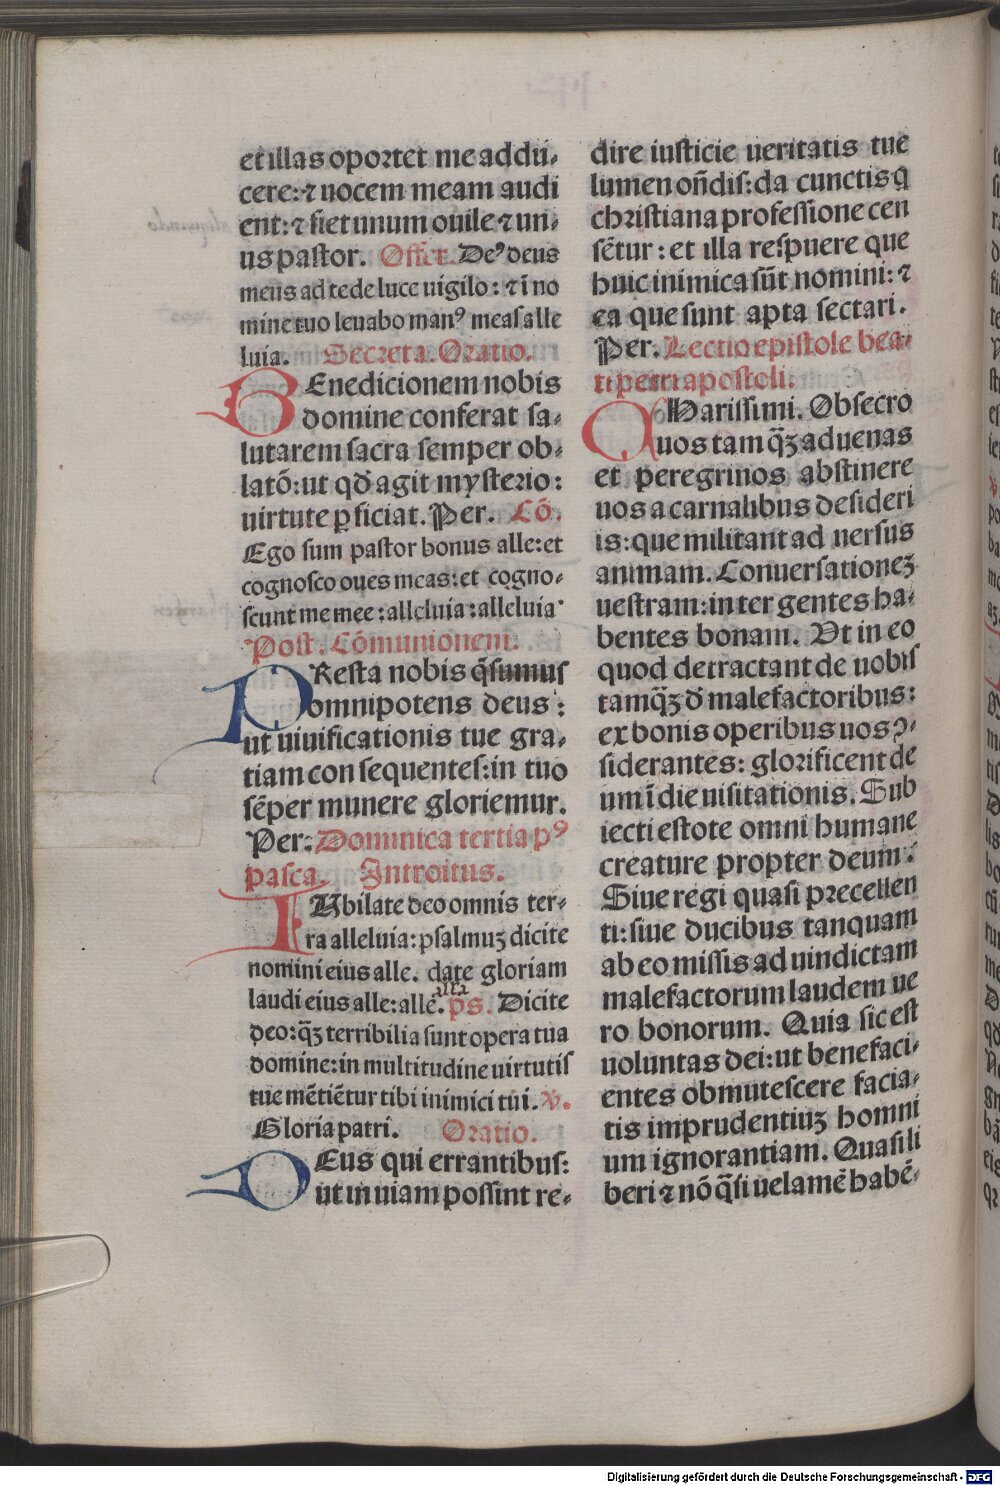 et illas oportet me addu-
cere: ⁊ uocem meam audi
ent: ⁊ fiet unum ouile ⁊ un-
us pastor. Offer. Deꝰ deus
meus ad te de luce uigilo: ⁊ ī no
mine tuo leuabo manꝰ meas alle
luia. Secreta. Oratio.
BEnedicionem nobis
domine conferat sa-
lutarem sacra semper ob-
latō: ut qđ agit mysterio:
uirtute ꝑficiat. Per. Cō.
Ego sum pastor bonus alle: et
cognosco oues meas: et cogno-
scunt me mee: alleluia: alleluia
Post. Cōmunionem.
PResta nobis q̄sumus
omnipotens deus:
ut uiuificationis tue gra-
tiam consequentes: in tuo
sēper munere gloriemur.
Per: Dominica tertia pꝰ
pasca. Introitus.
IUbilate deo omnis ter-
ra alleluia: psalmuꝫ dicite
nomini eius alle. date gloriam
laudi eius alle: allē. alla ps. Dicite
deo: q̄ꝫ terribilia sunt opera tua
domine: in multitudine uirtutis
tue mētiētur tibi inimici tui. V.
Gloria patri. Oratio.
DEus qui errantibus:
ut in uiam possint re-
dire iusticie ueritatis tue
lumen on̄dis: da cunctis q
christiana professione cen
sētur: et illa respuere que
huic inimica sūt nomini: ⁊
ea que sunt apta sectari.
Per. Lectio epistole bea-
ti petri apostoli.
CHarissimi. Obsecro
uos tamq̄ꝫ aduenas
et peregrinos abstinere
uos a carnalibus desideri
is: que militant ad uersus
animam. Conuersationeꝫ
uestram: inter gentes ha-
bentes bonam. Ut in eo
quod detractant de uobis
tamq̄ꝫ đ malefactoribus:
ex bonis operibus uos ↄ-
siderantes: glorificent de
um ī die uisitationis. Sub
iecti estote omni humane
creature propter deum:
Siue regi quasi precellen
ti: siue ducibus tanquam
ab eo missis ad uindictam
malefactorum laudem ue
ro bonorum. Quia sic est
uoluntas dei: ut benefaci-
entes obmutescere facia-
tis imprudentiuꝫ homni
um ignorantiam. Quasi li
beri ⁊ nō q̄si uelamē habē-
Digitalisierung gefördert durch die Deutsche Forschungsgemeinschaft - DFG